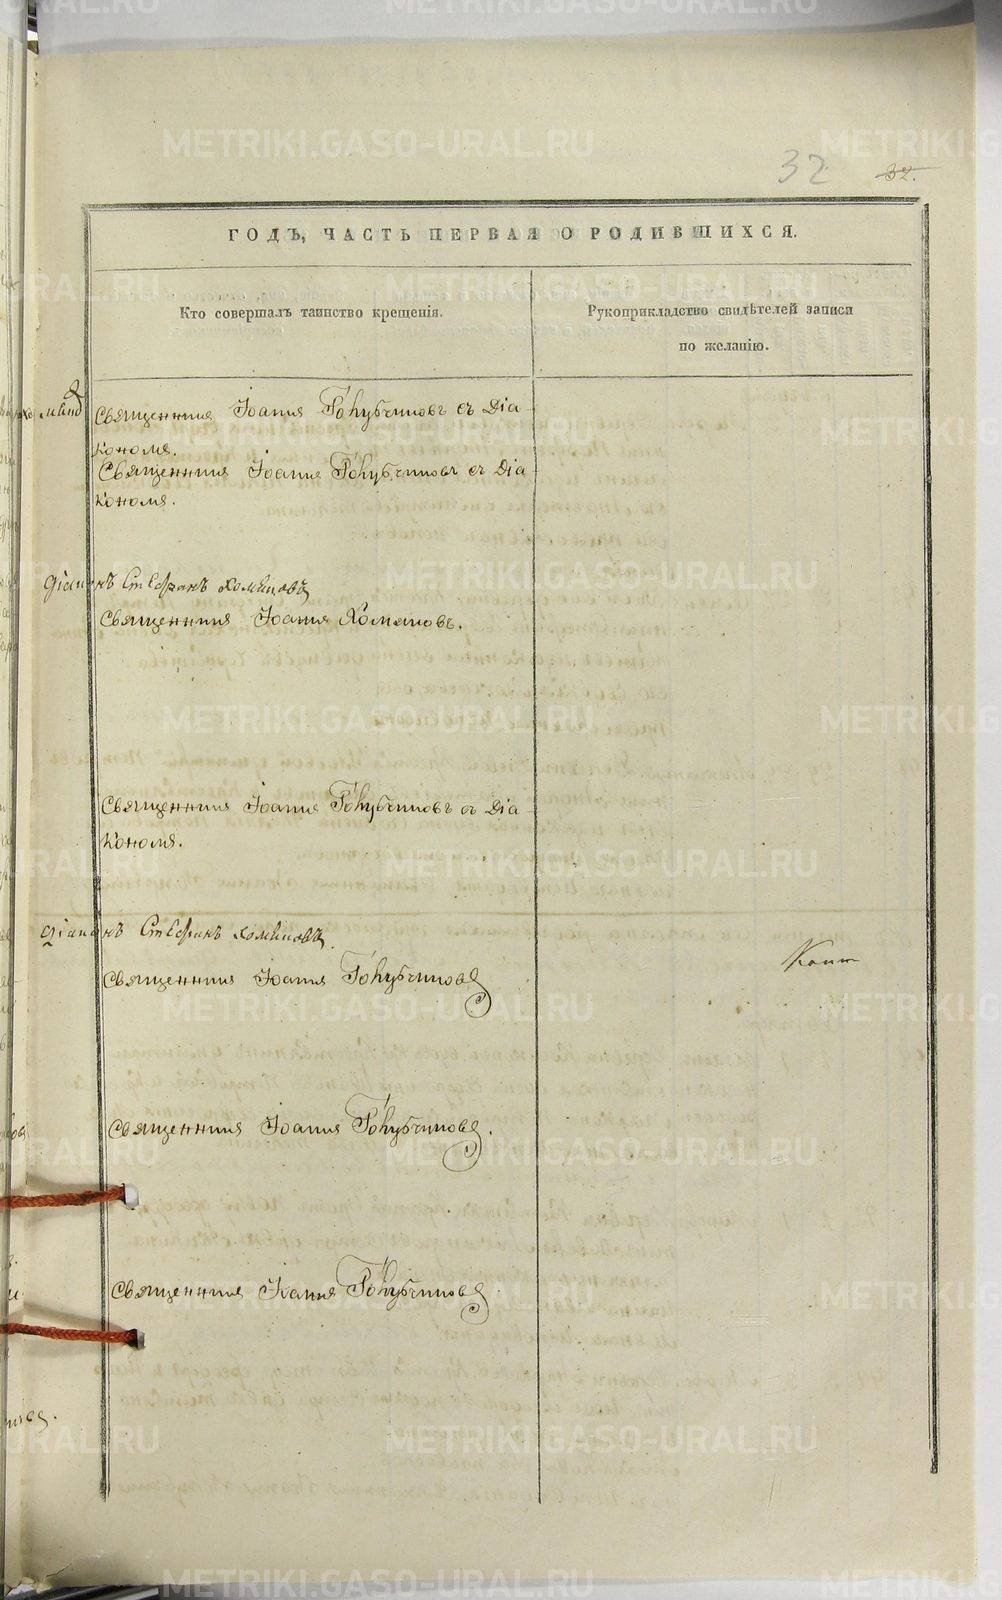 METRIKI.GASO-URAL.RU
32
32.
ГОДЪ, ЧАСТЬ ПЕРВАЯ О РОДИВШИХСЯ.
Кто совершалъ таинство крещенія.
Рукоприкладство свидѣтелей записи
по желанію.
Священникъ Іоаннъ Голубчиковъ съ Діа-
кономъ.
Священникъ Іоаннъ Голубчиковъ съ Діа-
кономъ.
діаконъ Стефанъ Хомяковъ
Священникъ Іоаннъ Хомяковъ.
Священникъ Іоаннъ Голубчиковъ съ Діа-
кономъ.
діаконъ Стефанъ Хомяковъ.
Священникъ Іоаннъ Голубчиковъ
Священникъ Іоаннъ Голубчиковъ.
Священникъ Іоаннъ Голубчиковъ